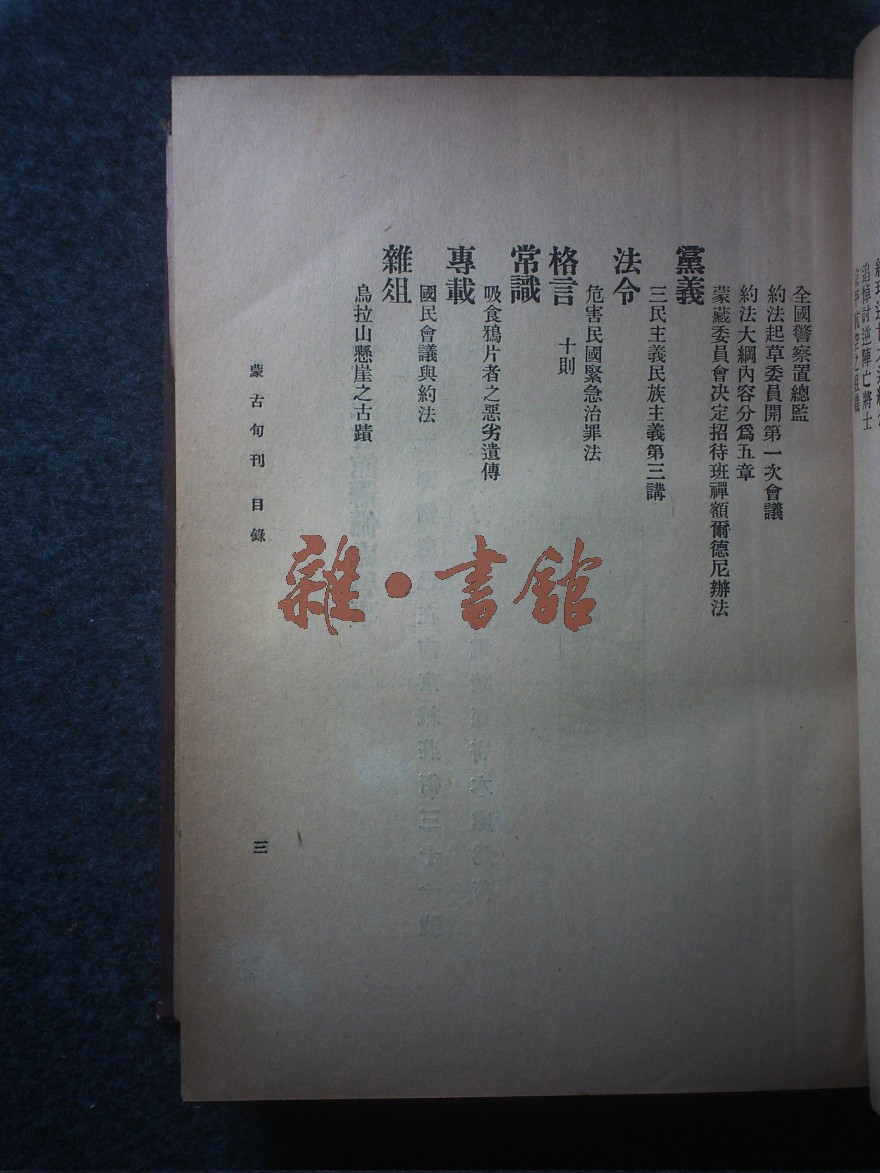 追悼討逆陣亡將士
全國警察置總監
約法起草委員開第一次會議
約法大綱內容分爲五章
蒙藏委員會決定招待班禪額爾德尼辦法
黨義
三民主義民族主義第三講
法令
危害民國緊急治罪法
格言 十則
常識
吸食鴉片者之惡劣遺傳
專載
國民會議與約法
雜俎
烏拉山懸崖之古蹟
蒙古旬刊 目錄
三
雜·書館